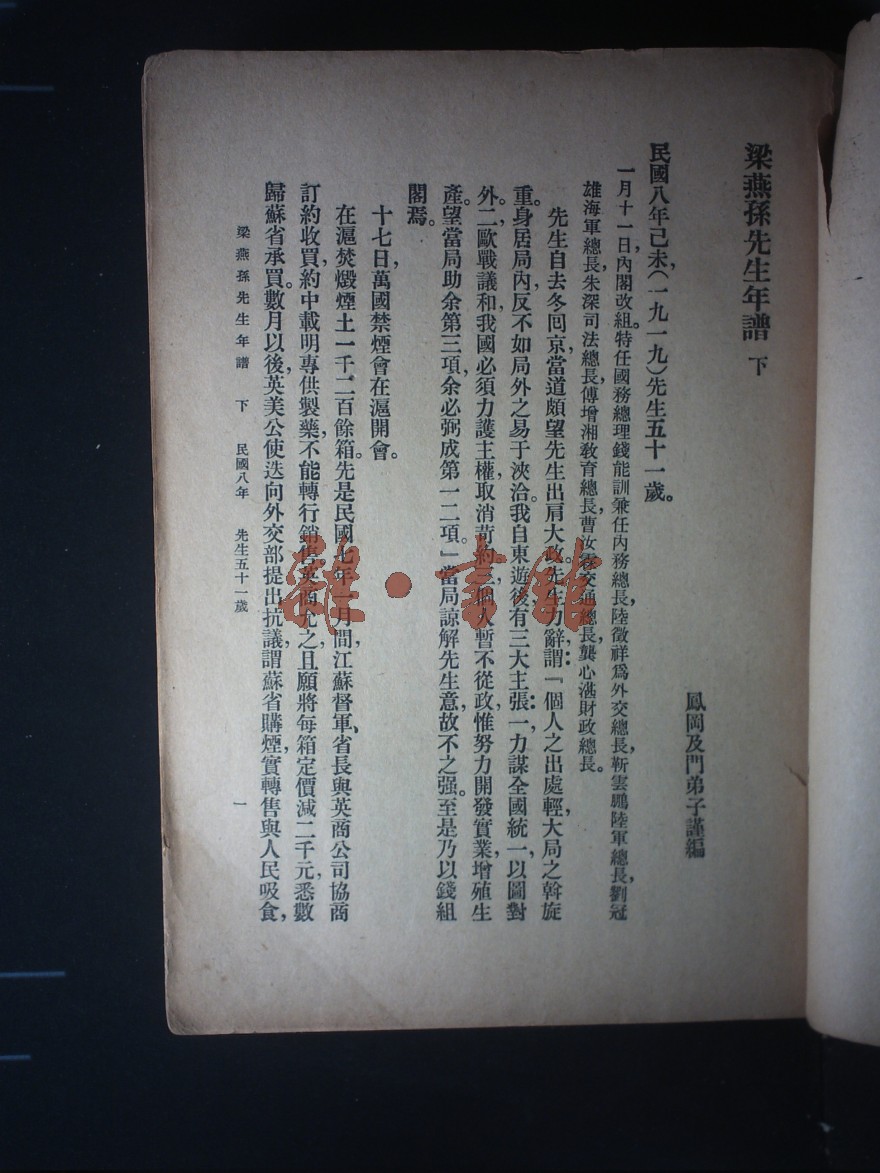 梁燕孫先生年譜 下
鳳岡及門弟子謹編
民國八年己未,(一九一九)先生五十一歲。
一月十一日,內閣改組。特任國務總理錢能訓兼任內務總長,陸徵祥爲外交總長,靳雲鵬陸軍總長,劉冠
雄海軍總長,朱深司法總長,傅增湘敎育總長,曹汝霖交通總長,龔心湛財政總長。
先生自去冬囘京,當道頗望先生出肩大政。先生力辭,謂:「個人之出處輕,大局之斡旋
重。身居局內,反不如局外之易于浹洽。我自東遊後,有三大主張:一,力謀全國統一,以圖對
外。二,歐戰議和,我國必須力護主權,取消苛約。三,個人暫不從政,惟努力開發實業,增殖生
產。望當局助余第三項,余必弼成第一二項。」當局諒解先生意,故不之强。至是乃以錢組
閣焉。
十七日,萬國禁煙會在滬開會。
在滬焚燬煙土一千二百餘箱。先是民國七年一月間,江蘇督軍、省長與英商公司協商
訂約收買,約中載明專供製藥,不能轉行銷售,英商允之,且願將每箱定價減二千元,悉數
歸蘇省承買。數月以後,英美公使迭向外交部提出抗議,謂蘇省購煙,實轉售與人民吸食,
梁燕孫先生年譜 下 民國八年 先生五十一歲 一
雜·書館